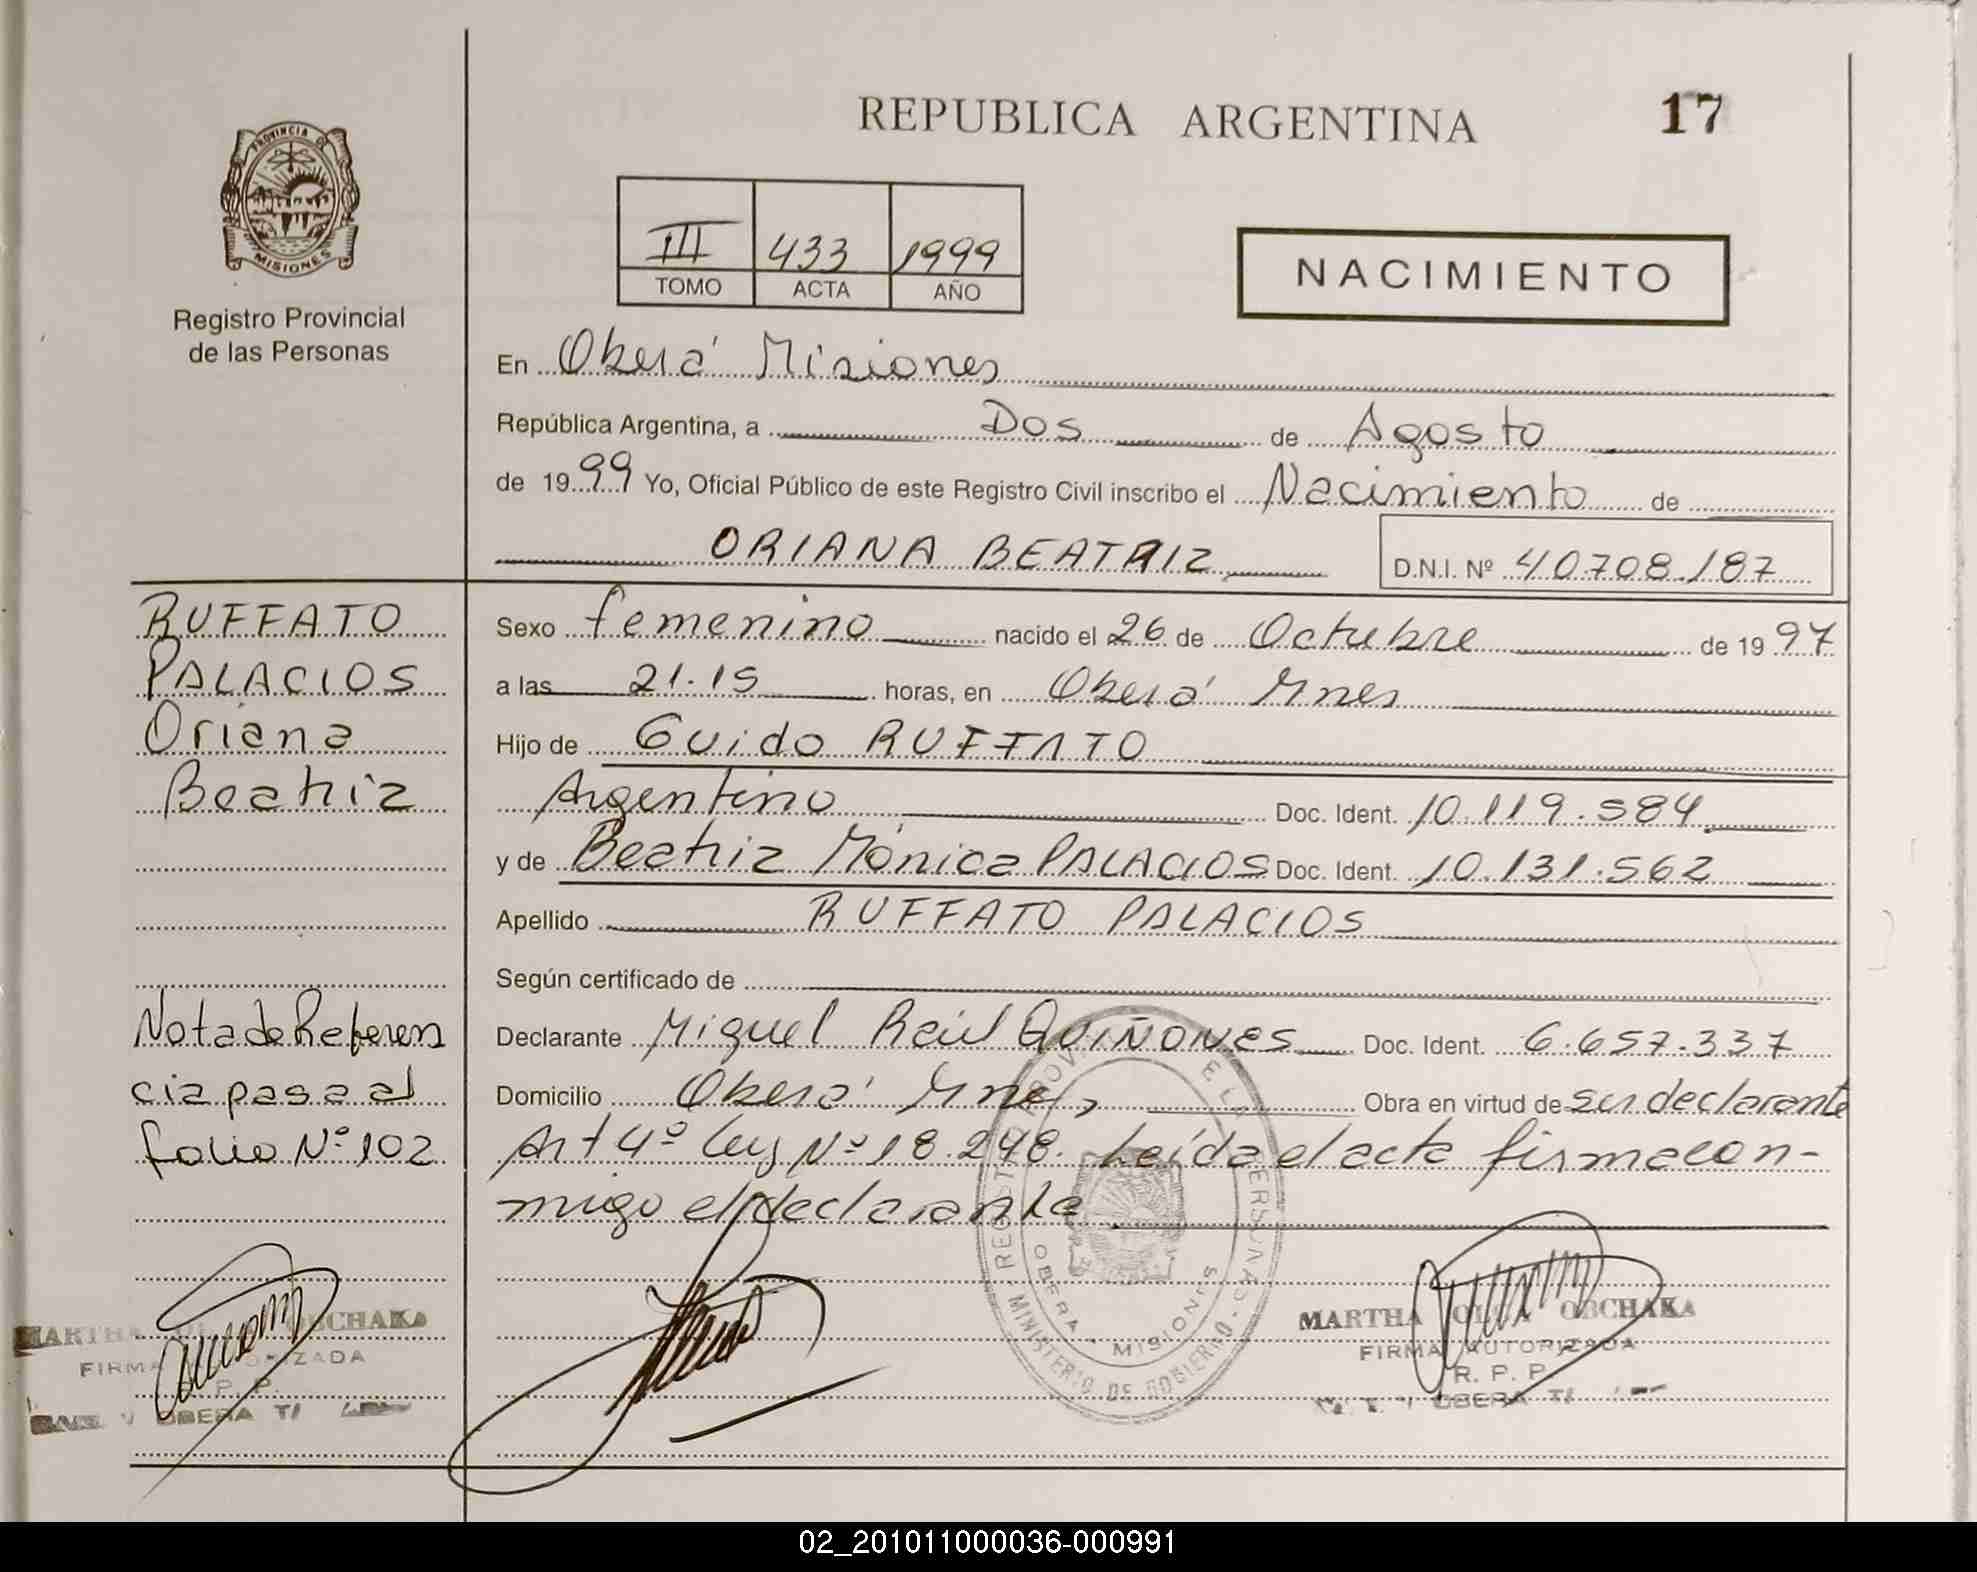 REPUBLICA ARGENTINA
17
PROVINCIA DE
MISIONES
Registro Provincial
de las Personas
III 433 1999
TOMO ACTA AÑO
NACIMIENTO
En Oberá Misiones
República Argentina, a Dos de Agosto
de 1999 Yo, Oficial Público de este Registro Civil inscribo el Nacimiento de
ORIANA BEATRIZ D.N.I. Nº 40.708.187
RUFFATO
PALACIOS
Oriana
Beatriz
Nota de Referen
cia pasa al
folio Nº 102
Sexo femenino nacido el 26 de Octubre de 1997
a las 21.15 horas, en Oberá Mnes
Hijo de Guido RUFFATO
Argentino Doc. Ident. 10.119.584
y de Beatriz Mónica PALACIOS Doc. Ident. 10.131.562
Apellido RUFFATO PALACIOS
Según certificado de
Declarante Miguel Raúl QUIÑONES Doc. Ident. 6.657.337
Domicilio Oberá Mnes, Obra en virtud de ser declarante
Art 4º Ley Nº 18.248. Leída el acta firma con-
migo el declarante
MARTHA OLGA OBCHAKA
FIRMA AUTORIZADA
R. P. P.
OBERA
MARTHA OBCHAKA
FIRMA AUTORIZADA
R. P. P.
OBERA
MINISTERIO DE GOBIERNO
OBERA - MISIONES
02_201011000036-000991